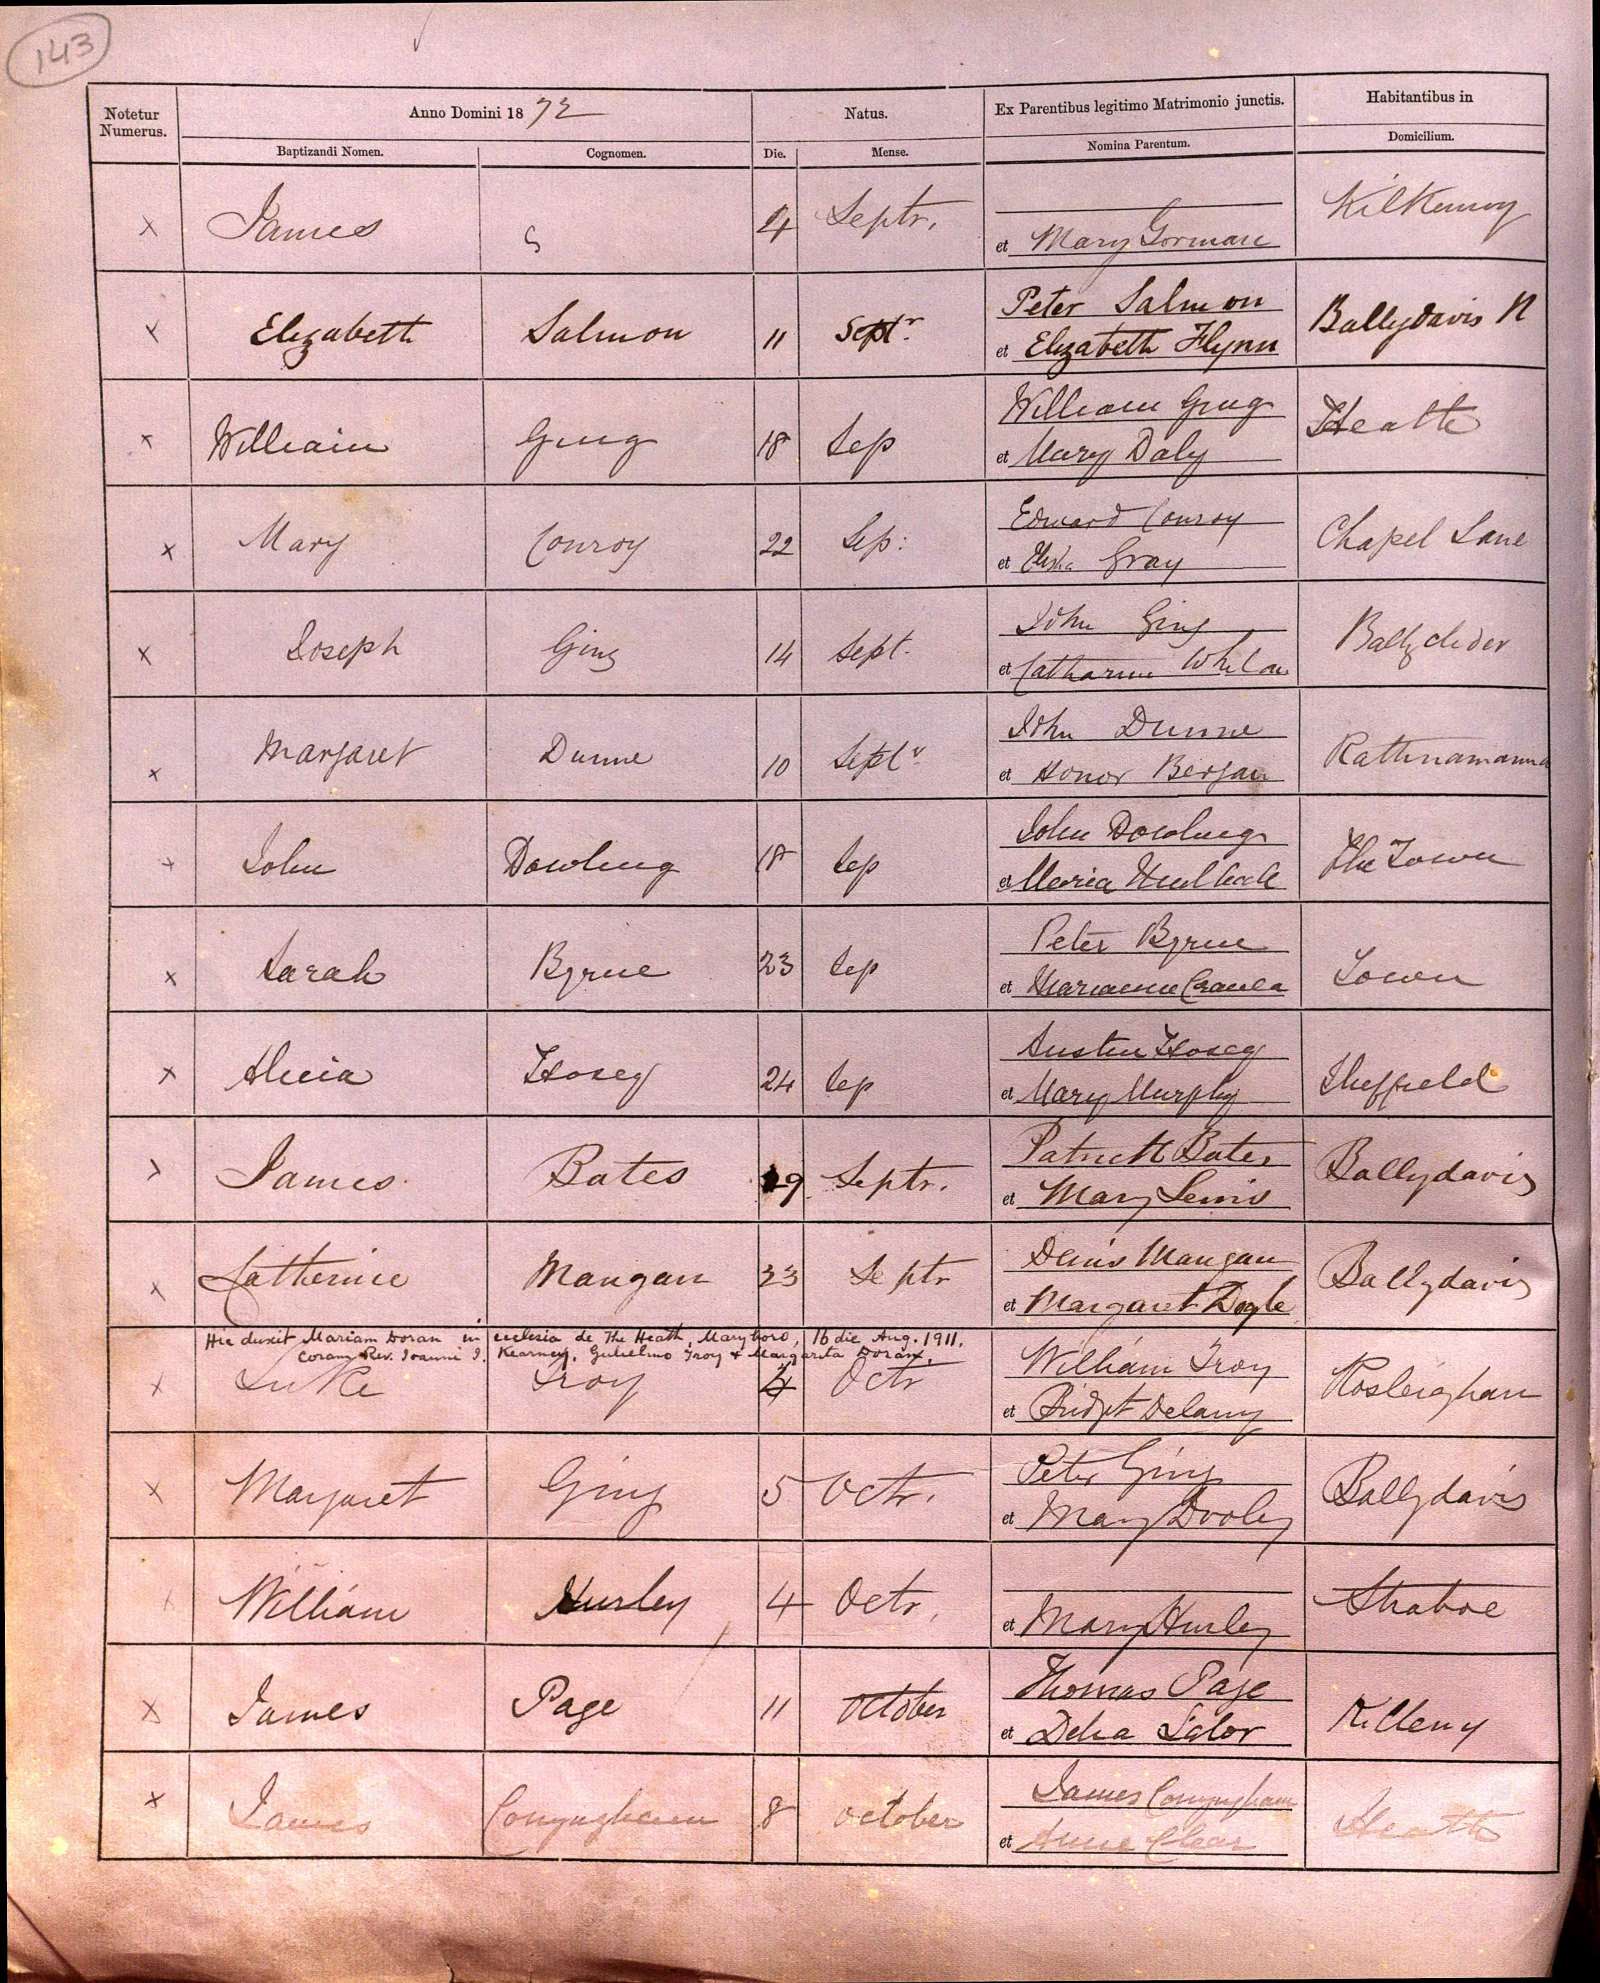 143
Notetur Numerus.
Anno Domini 1872
Natus.
Ex Parentibus legitimo Matrimonio junctis.
Habitantibus in
Baptizandi Nomen.
Cognomen.
Die.
Mense.
Nomina Parentum.
Domicilium.
x James 4 Septr. Kilkenny
et Mary Gorman
x Elizabeth Salmon 11 Septr. Peter Salmon Ballydavis N
et Elizabeth Flynn
x William Ging 18 Sep William Ging Heath
et Mary Daly
x Mary Conroy 22 Sep: Edward Conroy Chapel Lane
et Gray
x Joseph Ging 14 Sept. John Ging Ballyclider
et Catharine Whelan
x Margaret Dunne 10 Septr John Dunne Rathnamanna
et Honor Bergan
x John Dowling 18 Sep John Dowling The Town
et Maria
x Sarah Byrne 23 Sep Peter Byrne Town
et Marianne
x Alicia Hosey 24 Sep Austin Hosey Sheffield
et Mary Murphy
x James Bates 29 Septr. Patrick Bates Ballydavis
et Mary Lewis
x Catherine Mangan 23 Septr Denis Mangan Ballydavis
et Margaret Doyle
Hic duxit Mariam Doran in ecclesia de The Heath, Maryboro, 16 die Aug. 1911.
coram Rev. Joanni J. Kearney, Gulielmo Troy & Margarita Doran.
x Luke Troy 4 Octr William Troy Rosleighan
et Bridget Delany
x Margaret Ging 5 Octr. Peter Ging Ballydavis
et Mary Dooley
William Hurley 4 Octr. Straboe
et Mary Hurley
x James Page 11 October Thomas Page Killeny
et Delia Lalor
x James Conyngham 8 October James Conyngham Heath
et Anne Clear